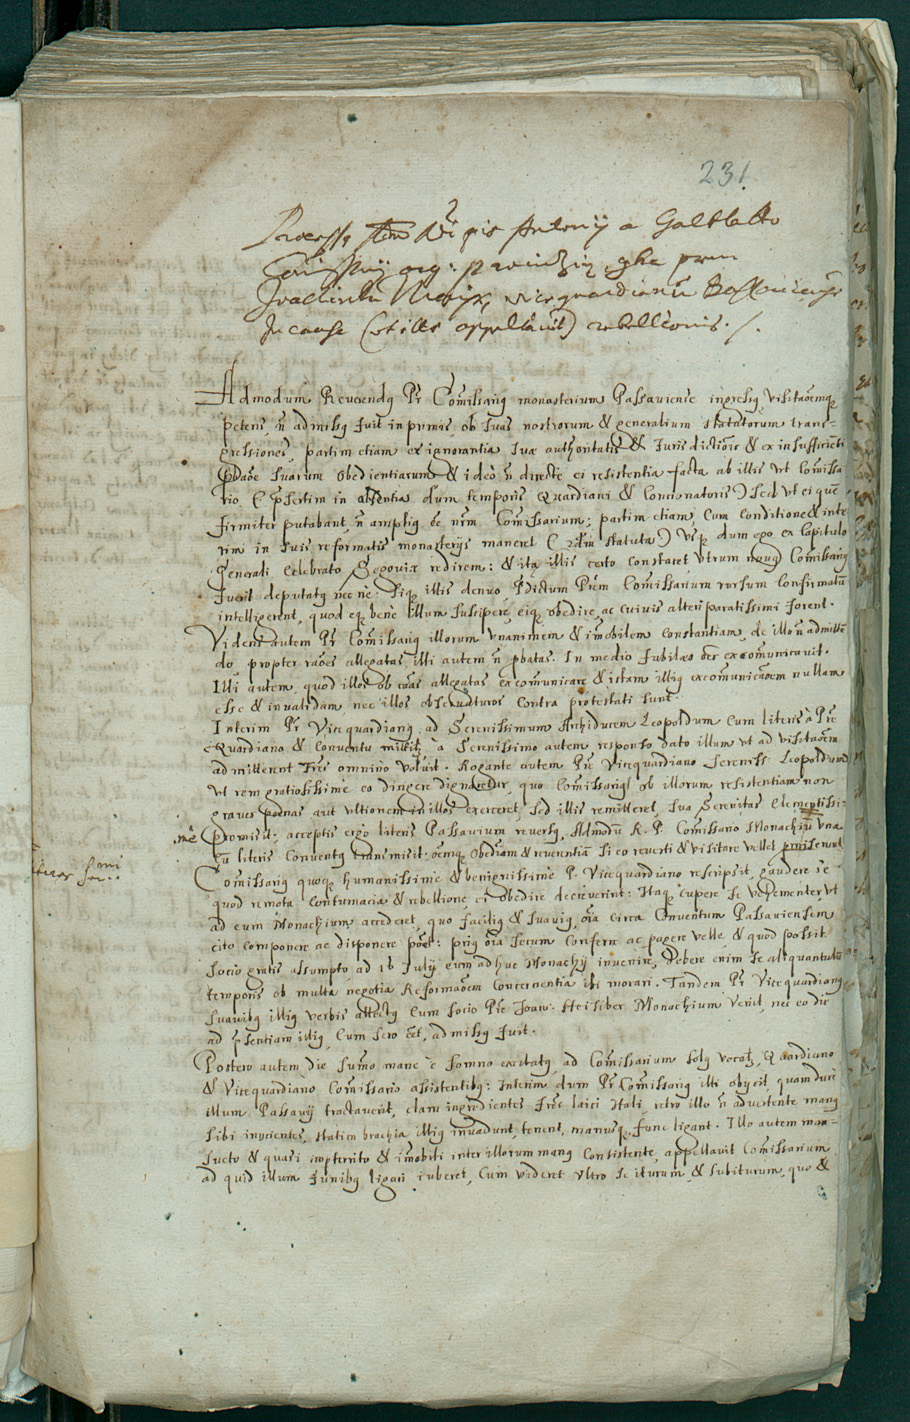 231
Processus A R P Antonij a Galbiatto
Comissarij prouinciæ, contra prem
Joachimum vicequardianum Passauiensem
In causa (vt ille appellauit) rebellionis ./.
Admodum Reuerendꝰ Pr̃ Com̃issariꝰ monasterium Passauiense ingressꝰ Visitãoemq̃
petens, ñ admissꝰ fuit in primis, ob suas nostrorum & generalium statutorum trans-
gressiones, partim etiam ex ignorantia suæ authoritatis & Jurisdictiõis & ex insufficiẽti
p̱bãoe suarum obedientiarum & ideò ñ directè ei resistentia facta ab illis vt Com̃issa
rio (p̱sertim in absentia dum temporis Quardiani & Concionatoris) sed vt ei quẽ
firmiter putabant, ñ ampliꝰ eẽ nr̃m Com̃issarium; partim etiam, cum conditione & inte
rim in suis reformatis monasterijs maneret (statuta) vsq̃ dum ego ex Capitulo
Generali celebrato Segouiæ redirem: & ita illis certo constaret vtrum nouꝰ Com̃issariꝰ
fuerit deputatꝰ nec ne. Siq̃ illis denuo p̱dictum Prẽm Comissarium rursum confirmatũ
intelligerent, quod eq̃ benè illum suscipere, eiq̃ obedire, ac cuiuis alteri paratissimi forent.
Videns autem Pr̃ Com̃issariꝰ illorum vnanimem & im̃obilem constantiam, de illo ñ admittẽ
do, propter rãoes allegatas, illi autem ñ p̱batas. In medio Jubilæo oẽs excomunicauit.
Illi autem, quod illos ob cãas allegatas excomunicare & istam illiꝰ excomunicãoem nullam
esse & inualidam, nec illos obseruaturos contra protestati sunt.
Interim Pr̃ Vicequardianꝰ ad Serenissimum Archiducem Leopoldum cum literis à Pr̃e
Quardiano & Conuentu mittitꝰ, à Serenissimo autem responso dato illum vt ad visitãoem
admitterent Fr̃es omnino voluit. Rogante autem Pr̃e Vicequardiano Sereniss: Leopoldum
vt rem gratiosissimè eo dirigere dignaretur, quo Comissariꝰ ob illorum resistentiam non
graues poenas aut vltionem in illos exerceret, sed illis remitteret, Sua Serenitas Clementissi-
mè
promisit; acceptis ergo literis Passauium reuersꝰ, Admodũ R. P. Com̃issario Monachium vna
cũ literis Conuentꝰ transmisit, oẽmq̃ obediãm & reuerentiã si eo reuerti & visitare vellet promiserunt
Com̃issariꝰ quoq̃ humanissimè & benignissimè P. Vicequardiano rescripsit, gaudere se
quod remota contumacia & rebellione, ei obedire decreuerint: Itaq̃ cupere se vehementer, vt
ad eum Monachium accederet, quo faciliꝰ & suauiꝰ, õia circa Conuentum Passauiensem
cito componere ac disponere poẽt: priꝰ õia secum conferre ac pagere velle, & quod possit
socio gratis assumpto ad 16 Julij eum adhuc Monachij inuenire, Debere enim se aliquantulũ
temporis ob multa negotia Reformãoem concernentia ibi morari. Tandem Pr̃ Vicequardianꝰ
suauibꝰ illiꝰ verbis allectꝰ cum socio Pr̃e Joan: Heisiber Monachium venit, nec eo die
ad p̱sentiam illiꝰ, cum sero eẽt, admissꝰ fuit.
Postero autem die sum̃o manè è somno excitatꝰ, ad Com̃issarium solꝰ vocatꝰ, Quardiano
& Vicequardiano Com̃issario assistentibꝰ: Interim dum Pr̃ Com̃issariꝰ illi obijcit, quam durè
illum Passauij tractauerit, clam ingredientes Fr̃es laici Itali, retro illo ñ aduertente manꝰ
sibi inijcientes, statim brachia illiꝰ inuadunt, tenent, manusq̃ fune ligant. Illo autem man-
sueto & quasi imperterrito & im̃obili inter illorum manꝰ consistente, appellauit Comissarium
ad quid illum funibꝰ ligari iuberet, cum videret vltro se iturum & subiturum, quo &